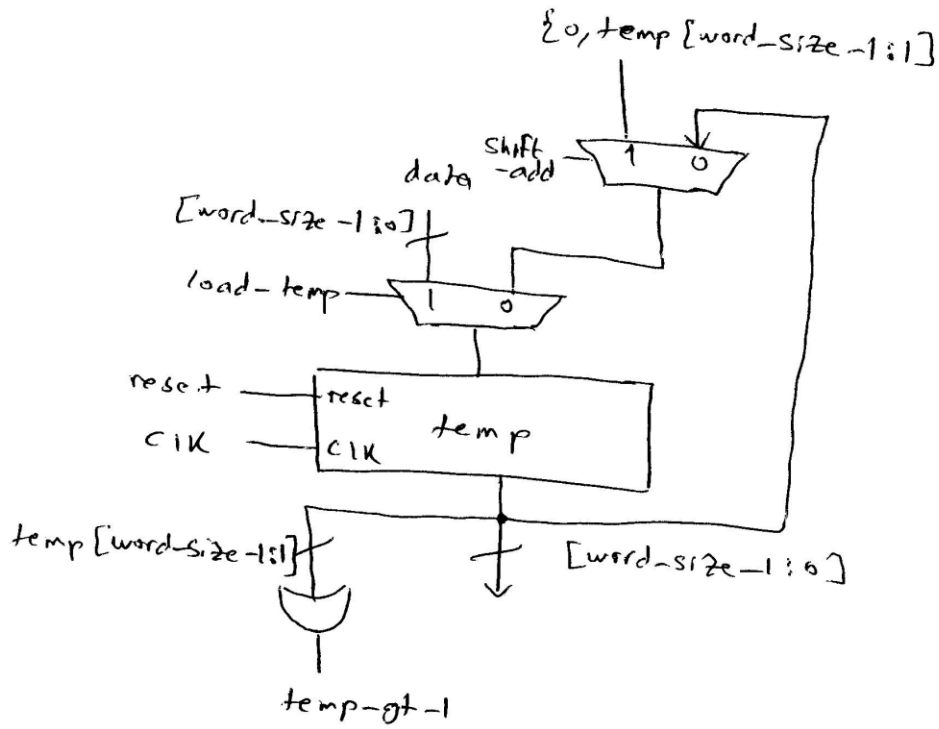 {0, temp [word_size-1:1]
shift
-add
1 0
data
[word_size-1:0]
load-temp
1 0
reset
reset
temp
clk
clk
temp [word-size-1:1]
[word_size_1:0]
temp-gt-1